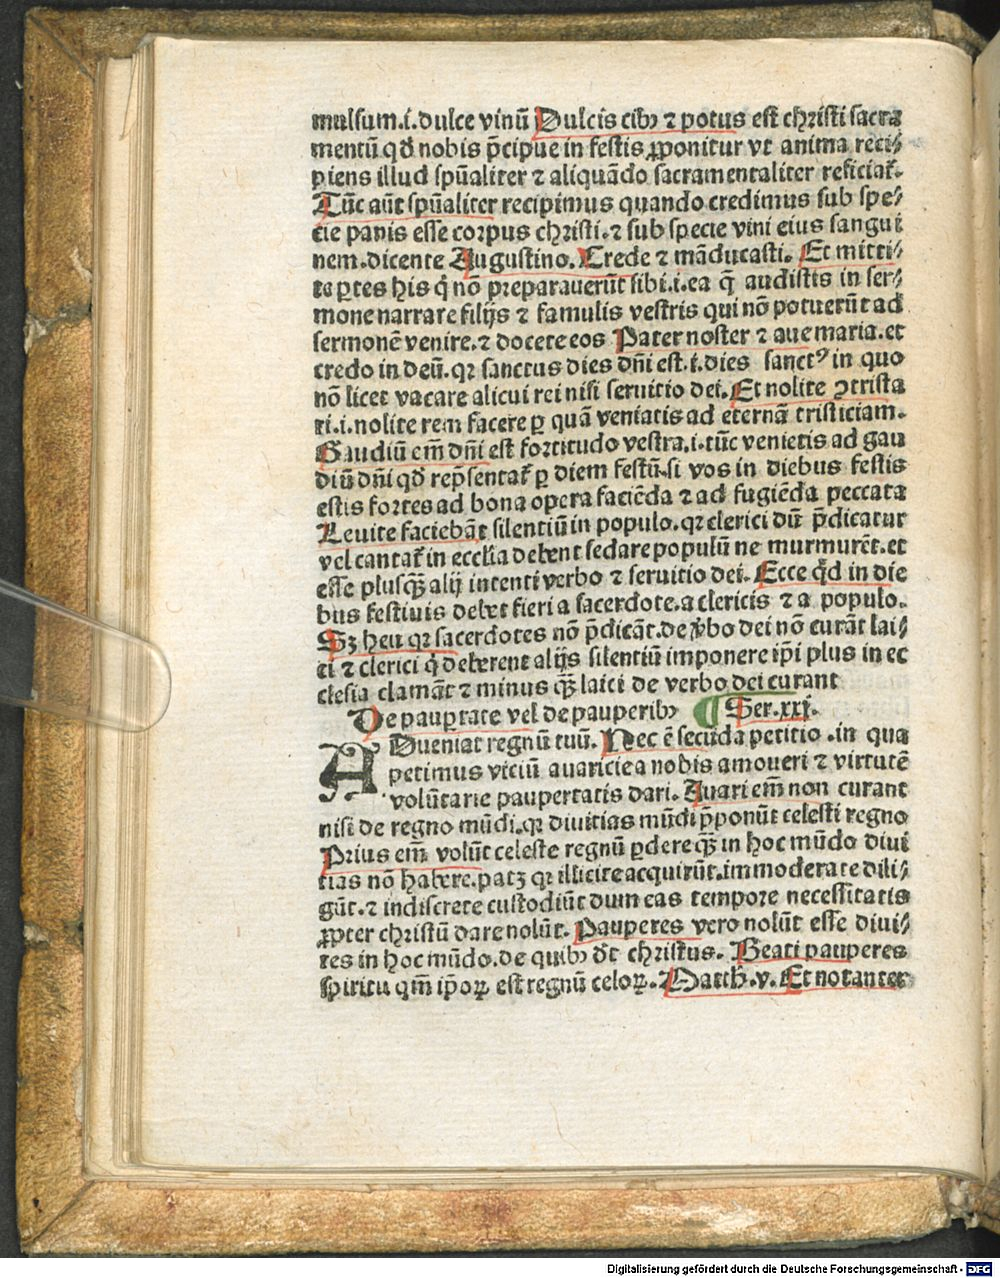 mulsum.i.dulce vinū Dulcis cibꝫ ⁊ potus est christi sacra
mentū qđ nobis p̄cipue in festis ꝓponitur vt anima reci⸗
piens illud spūaliter ⁊ aliquādo sacramentaliter reficiat̃.
Tūc aūt spūaliter recipimus quando credimus sub spe⸗
cie panis esse corpus christi.⁊ sub specie vini eius sangui
nem.dicente Augustino. Crede ⁊ māducasti. Et mitti⸗
te ꝑtes his q̇ nō preparauerūt sibi.i.ea q̄ audistis in ser⸗
mone narrare filijs ⁊ famulis vestris qui nō potuerūt ad
sermonē venire.⁊ docete eos Pater noster ⁊ aue maria.et
credo in deū.qꝛ sanctus dies dn̄i est.i.dies sanctꝰ in quo
nō licet vacare alicui rei nisi seruitio dei. Et nolite ꝯtrista
ri.i.nolite rem facere ꝑ quā veniatis ad eternā tristiciam.
Gaudiū em̄ dn̄i est fortitudo vestra.i.tūc venietis ad gau
diū dn̄i qđ rep̄sentat̃ ꝑ diem festū.si vos in diebus festis
estis fortes ad bona opera faciēda ⁊ ad fugiēda peccata
Leuite faciebāt silentiū in populo.qꝛ clerici dū p̄dicatur
vel cantat̃ in ecclīa debent sedare populū ne murmurēt.et
esse plusq̄ꝫ alij intenti verbo ⁊ seruitio dei. Ecce q̇d in die
bus festiuis debet fieri a sacerdote.a clericis ⁊ a populo.
Sꝫ heu qꝛ sacerdotes nō p̄dicāt.de v̇bo dei nō curāt lai⸗
ci ⁊ clerici q̇ deberent alijs silentiū imponere ip̄i plus in ec
clesia clamāt ⁊ minus q̄ꝫ laici de verbo dei curant
De pauꝑtate vel de pauperibꝫ ¶ Ser.xxj.
ADueniat regnū tuū. Nec ē secūda petitio .in qua
petimus viciū auaricie a nobis amoueri ⁊ virtutē
volūtarie paupertatis dari. Auari em̄ non curant
nisi de regno mūdi.qꝛ diuitias mūdi p̄ponūt celesti regno
Prius em̄ volūt celeste regnū ꝑdere q̄ꝫ in hoc mūdo diui
tias nō habere.patꝫ qꝛ illicite acquirūt.immoderate dili⸗
gūt.⁊ indiscrete custodiūt dum eas tempore necessitatis
ꝓpter christū dare nolūt. Pauperes vero nolūt esse diui⸗
tes in hoc mūdo.de quibꝫ dr̄ christus. Beati pauperes
spiritu qm̄ ip̄oꝝ est regnū celoꝝ. Matth.v. Et notanter
Digitalisierung gefördert durch die Deutsche Forschungsgemeinschaft - DFG